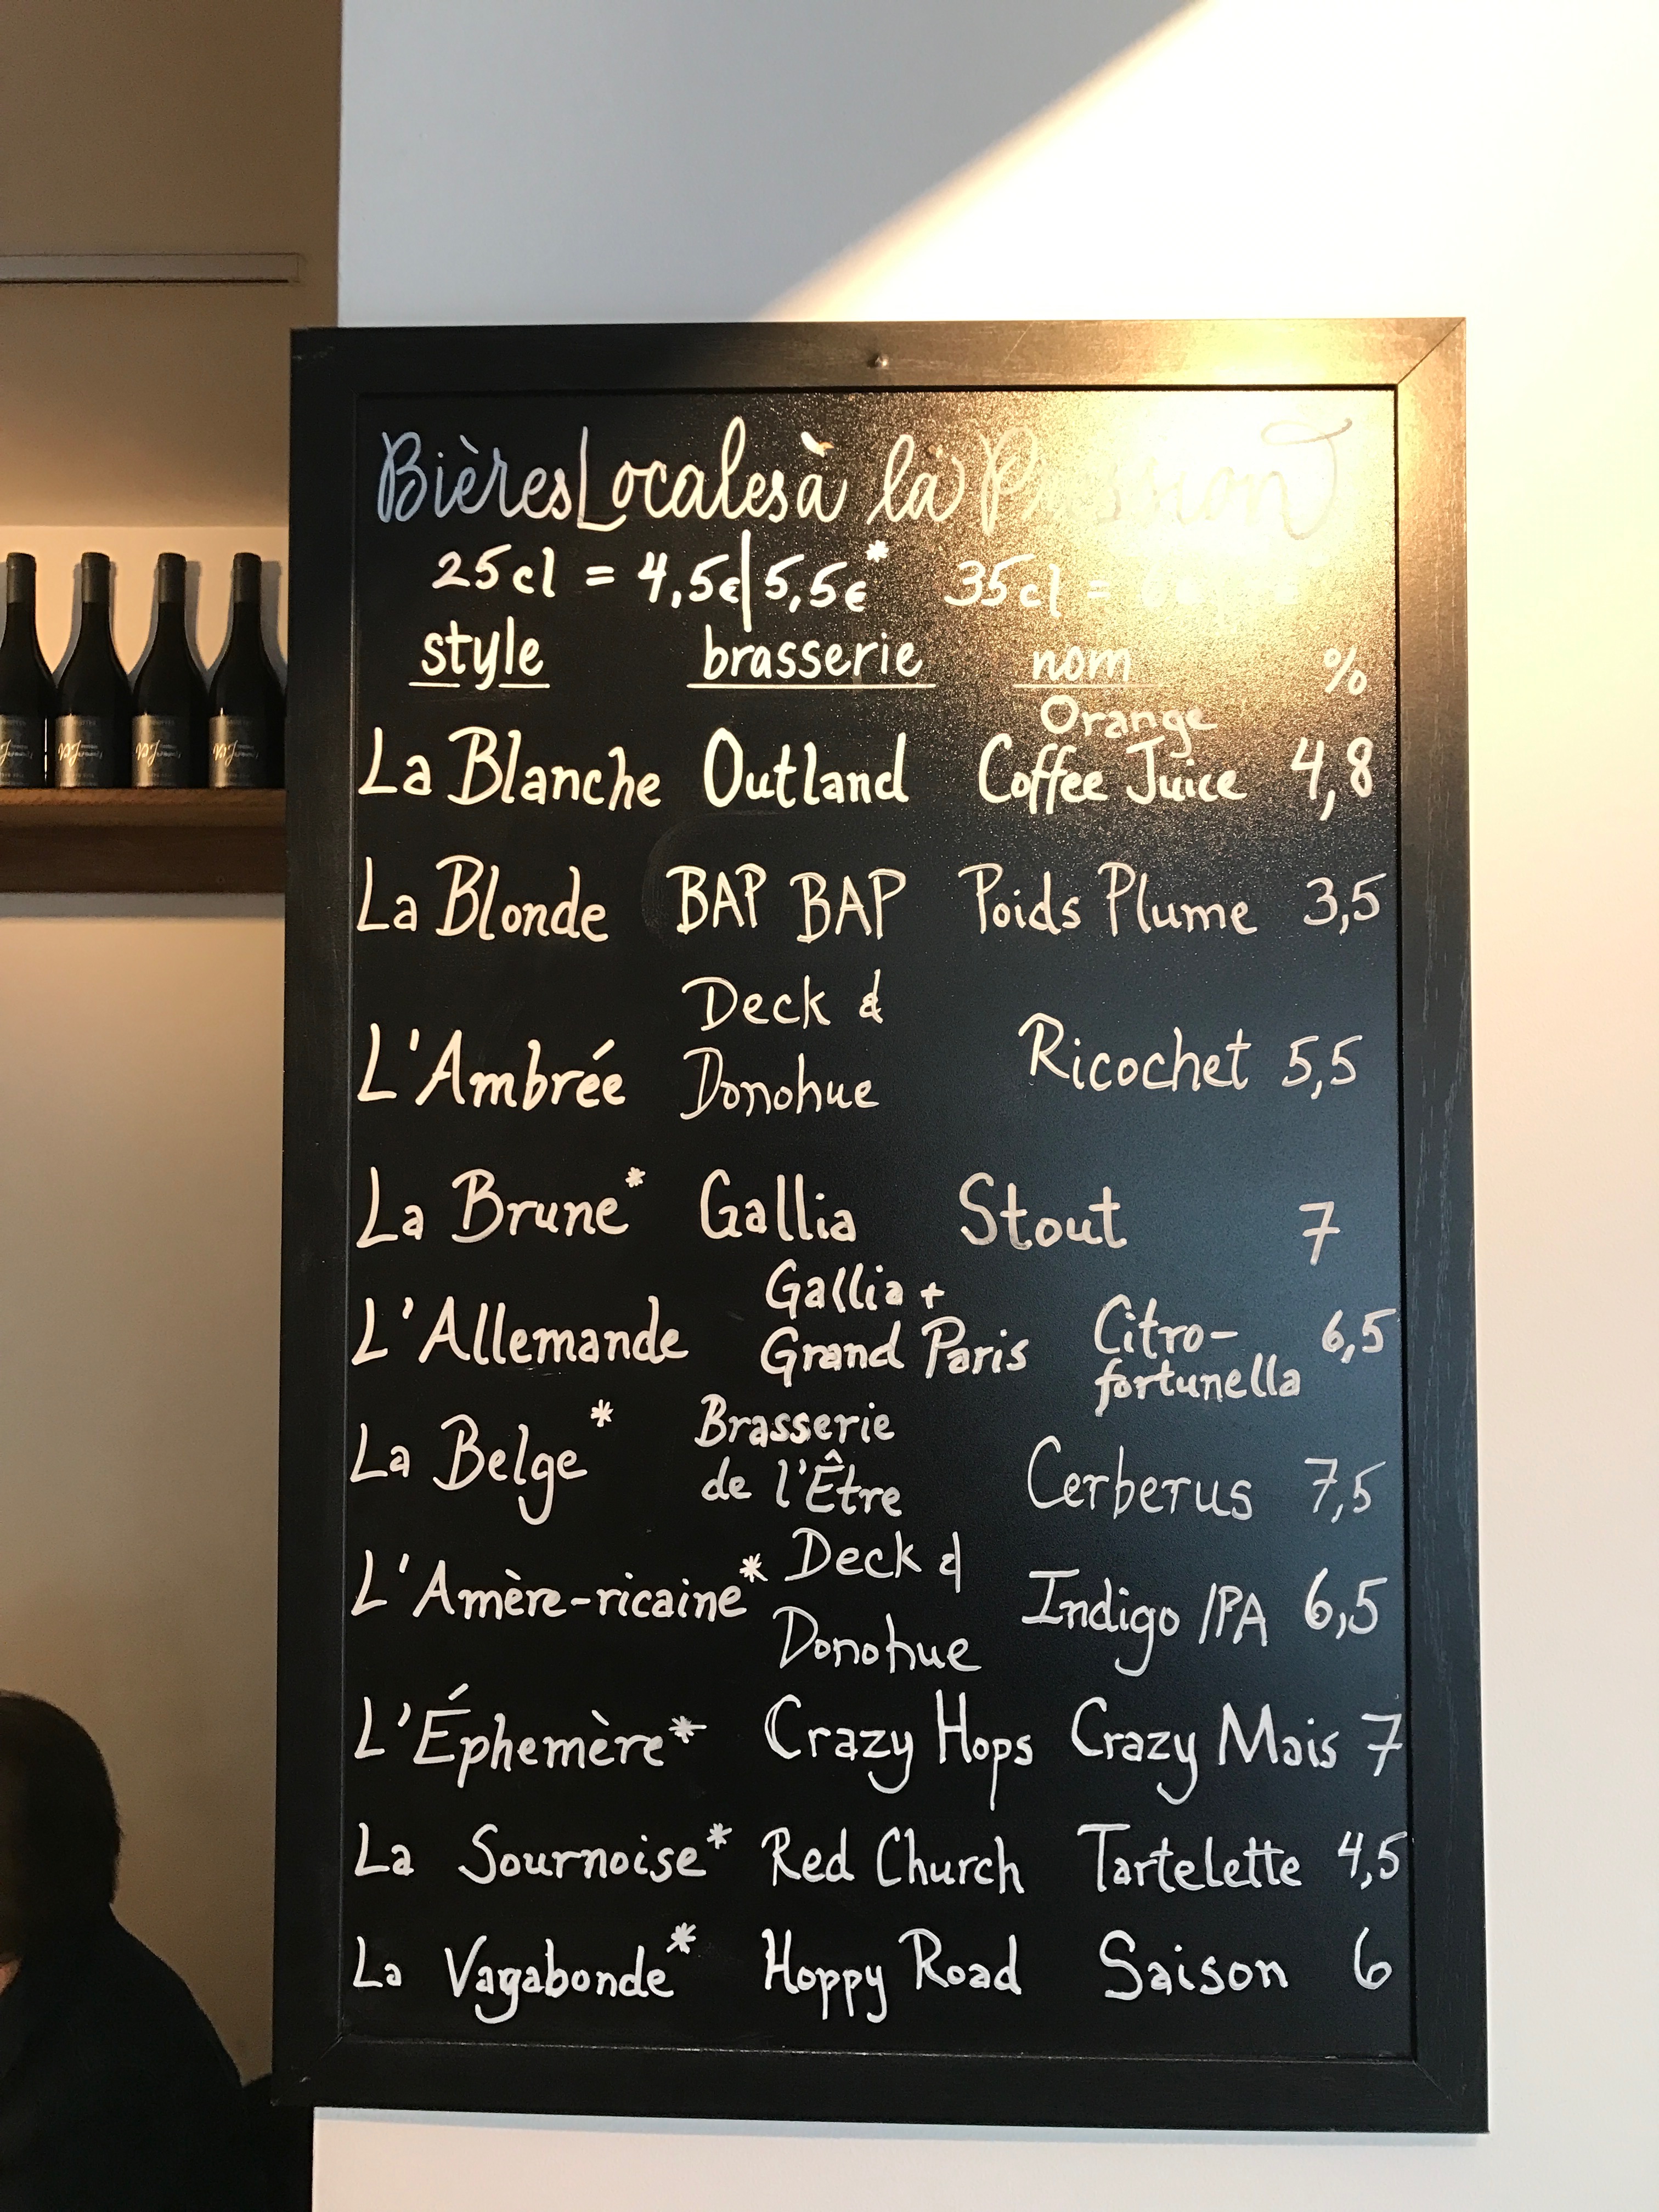 Bières Locales à la Pression
25cl = 4,5€|5,5€* 35cl =
style brasserie nom %
La Blanche Outland Orange Coffee Juice 4,8
La Blonde BAP BAP Poids Plume 3,5
L'Ambrée Deck & Donohue Ricochet 5,5
La Brune* Gallia Stout 7
L'Allemande Gallia + Grand Paris Citro-fortunella 6,5
La Belge* Brasserie de l'Être Cerberus 7,5
L'Amère-ricaine* Deck & Donohue Indigo IPA 6,5
L'Éphemère* Crazy Hops Crazy Mais 7
La Sournoise* Red Church Tartelette 4,5
La Vagabonde* Hoppy Road Saison 6